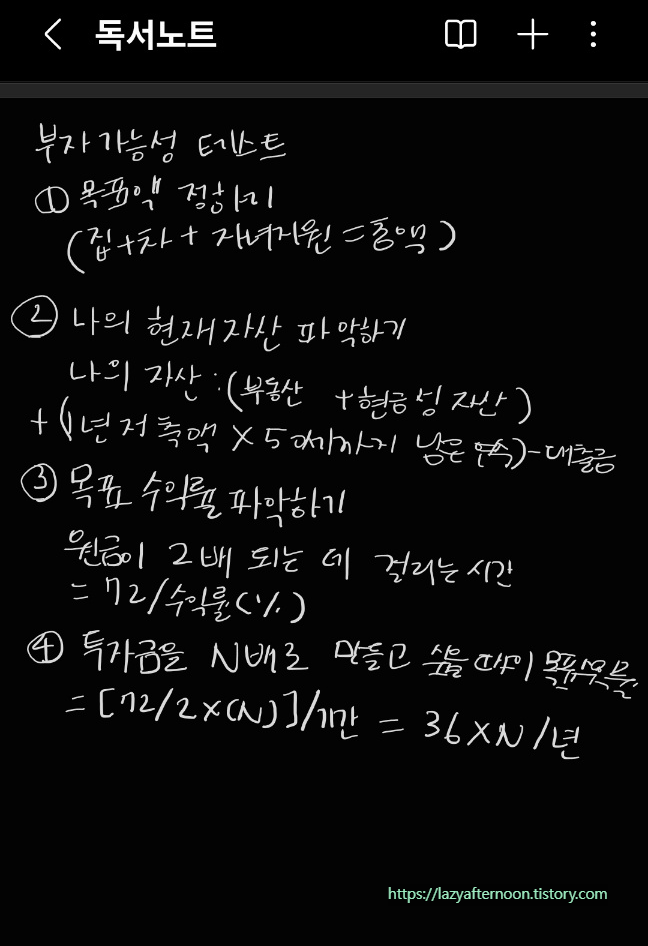 독서노트
부자 가능성 테스트
① 목표액 정하기
(집+차+자녀지원=총액)
② 나의 현재자산 파악하기
나의 자산:(부동산 +현금성 자산)
+(1년 저축액 X 50세까지 남은 연수)-대출금
③ 목표 수익률 파악하기
원금이 2배 되는 데 걸리는 시간
= 72/수익률(%)
④ 투자금을 N배로 만들고 싶을 때의
= [72/2×(N)]/기간 = 36×N/년
https://lazyafternoon.tistory.com